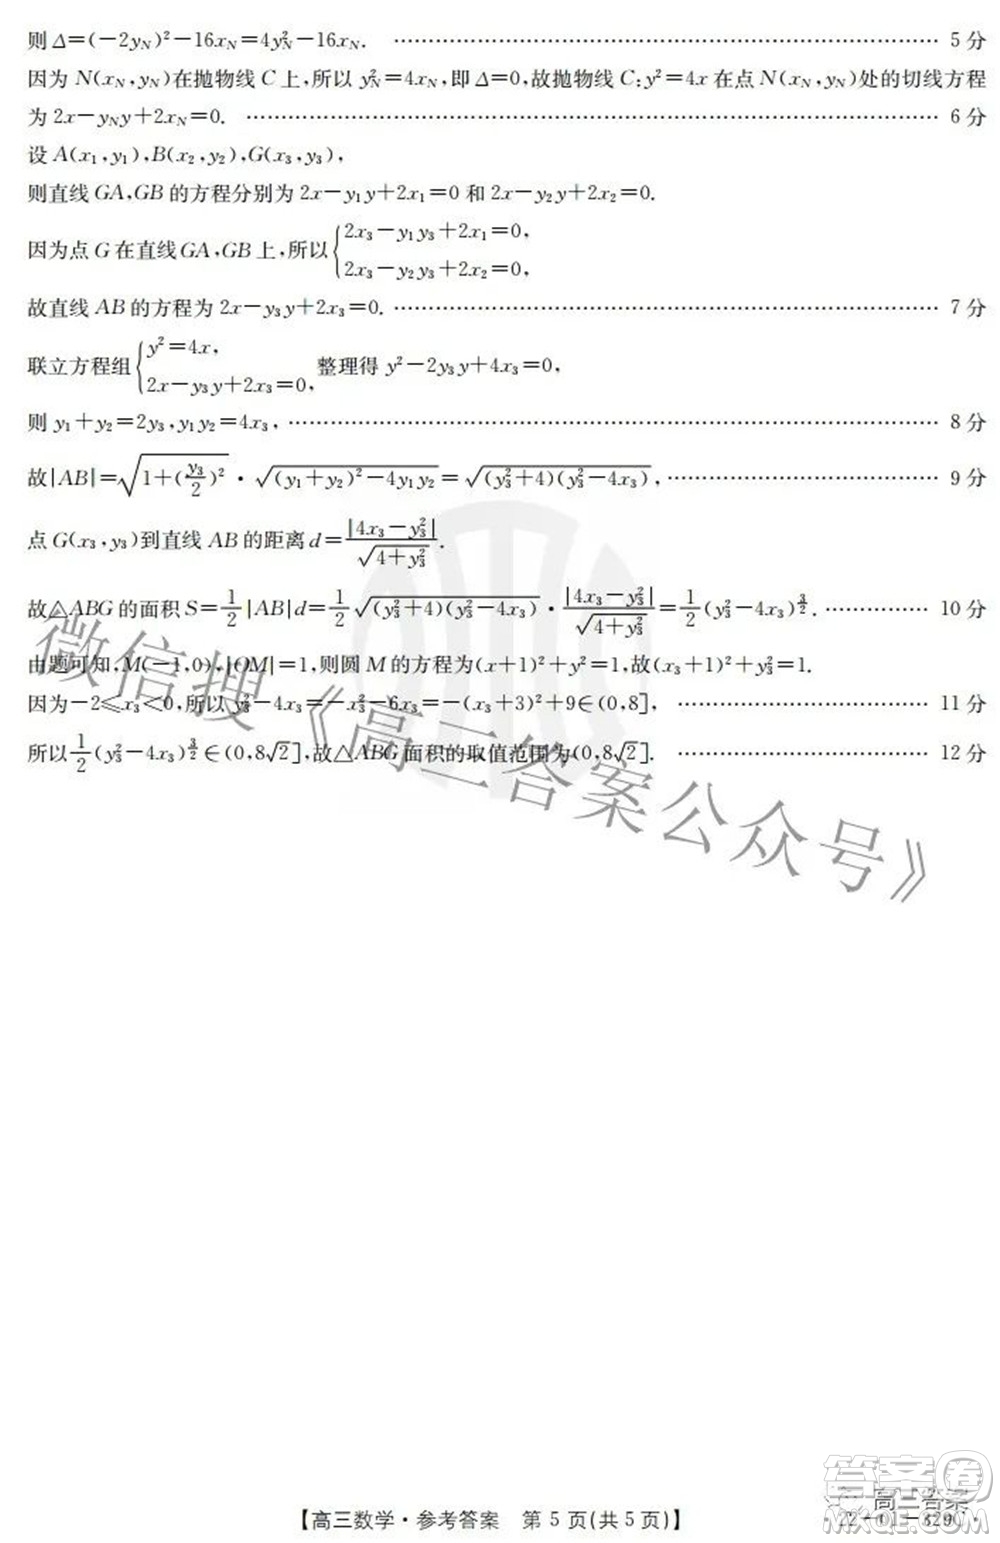 则 Δ=(-2y_N)²-16x_N=4y_N²-16x_N. …… 5 分
因为 N(x_N,y_N)在抛物线 C 上,所以 y_N²=4x_N,即 Δ=0,故抛物线 C:y²=4x 在点 N(x_N,y_N)处的切线方程
为 2x-y_N y+2x_N=0. …… 6 分
设 A(x₁,y₁),B(x₂,y₂),G(x₃,y₃),
则直线 GA,GB 的方程分别为 2x-y₁y+2x₁=0 和 2x-y₂y+2x₂=0.
因为点 G 在直线 GA,GB 上,所以{2x₃-y₁y₃+2x₁=0, 2x₃-y₂y₃+2x₂=0,
故直线 AB 的方程为 2x-y₃y+2x₃=0. …… 7 分
联立方程组{y²=4x, 2x-y₃y+2x₃=0, 整理得 y²-2y₃y+4x₃=0,
则 y₁+y₂=2y₃,y₁y₂=4x₃, …… 8 分
故|AB|=√(1+(y₃/2)²)·√((y₁+y₂)²-4y₁y₂)=√((y₃²+4)(y₃²-4x₃)), …… 9 分
点 G(x₃,y₃)到直线 AB 的距离 d=|4x₃-y₃²|/√(4+y₃²).
故△ABG 的面积 S=1/2|AB|d=1/2√((y₃²+4)(y₃²-4x₃))·|4x₃-y₃²|/√(4+y₃²)=1/2(y₃²-4x₃)^(3/2). …… 10 分
由题可知,M(-1,0),|OM|=1,则圆 M 的方程为(x+1)²+y²=1,故(x₃+1)²+y₃²=1.
因为-2≤x₃<0,所以 y₃²-4x₃=-x₃²-6x₃=-(x₃+3)²+9∈(0,8], …… 11 分
所以1/2(y₃²-4x₃)^(3/2)∈(0,8√2],故△ABG 面积的取值范围为(0,8√2]. …… 12 分
微信搜《高三答案公众号》
【高三数学·参考答案 第 5 页(共 5 页)】
答案圈
高三答案